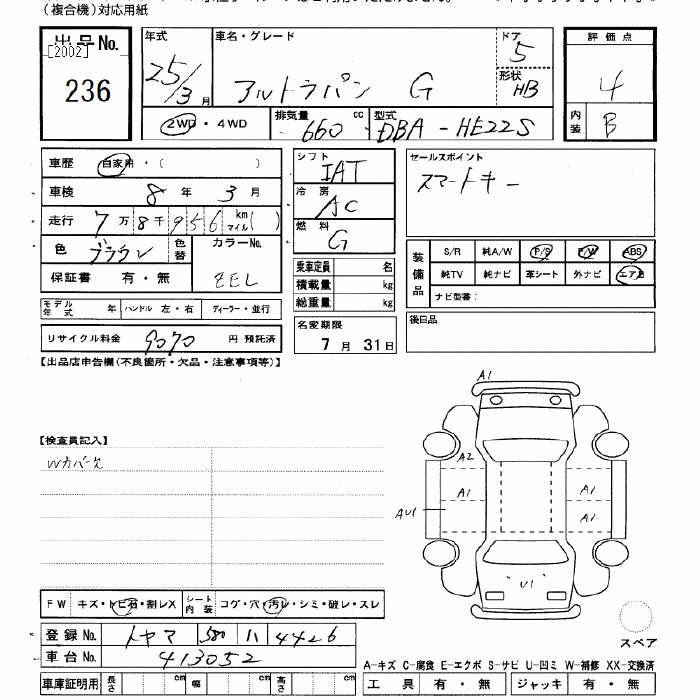 (複合機)対応用紙
出品No. [2002] 236
年式 25/3月
車名・グレード アルトラパン G
ドア 5
形状 HB
評価点 4
内装 B
2WD・4WD
排気量 660 cc
型式 DBA-HE22S
車歴 自家用・( )
車検 8年 3月
走行 7万8千956 km マイル( )
色 ブラウン 色替
カラーNo. ZEL
保証書 有・無
モデル年式 年 ハンドル 左・右 ディーラー・並行
リサイクル料金 9070 円 預託済
シフト IAT
冷房 AC
燃料 G
乗車定員 名
積載量 kg
総重量 kg
名変期限
7月31日
セールスポイント
スマートキー
装備品 S/R 純A/W P/S P/W ABS
純TV 純ナビ 革シート 外ナビ エアB
ナビ型番:
後日品
【出品店申告欄(不良箇所・欠品・注意事項等)】
【検査員記入】
Wカバー欠
A1
A2
A1
A1
A1
AU1
U1
スペア
FW キズ・トビ石・割レX シート内装 コゲ・穴・汚レ・シミ・破レ・スレ
登録No. トヤマ 580 ハ 4426
車台No. 413052
車庫証明用 長さ cm 幅 cm 高さ cm
A-キズ C-腐食 E-エクボ S-サビ U-凹ミ W-補修 XX-交換済
工具 有・無 ジャッキ 有・無